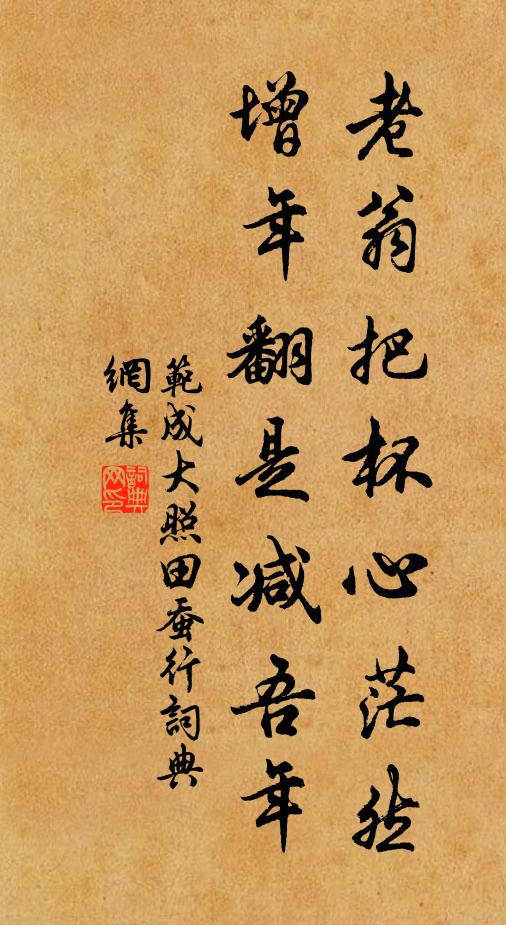 老翁把杯心茫然
增年翻是减吾年
範成大照田蚕行詞典
網集
詞典
网印